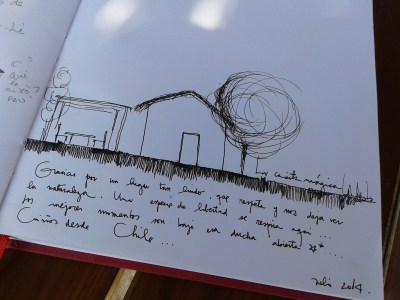 La casita mágica
Gracias por un lugar tan lindo que respeta y nos deja ver
la naturaleza. Una especie de libertad se respira aquí...
los mejores momentos son bajo esa ducha abierta
Cariños desde Chile...
2014.